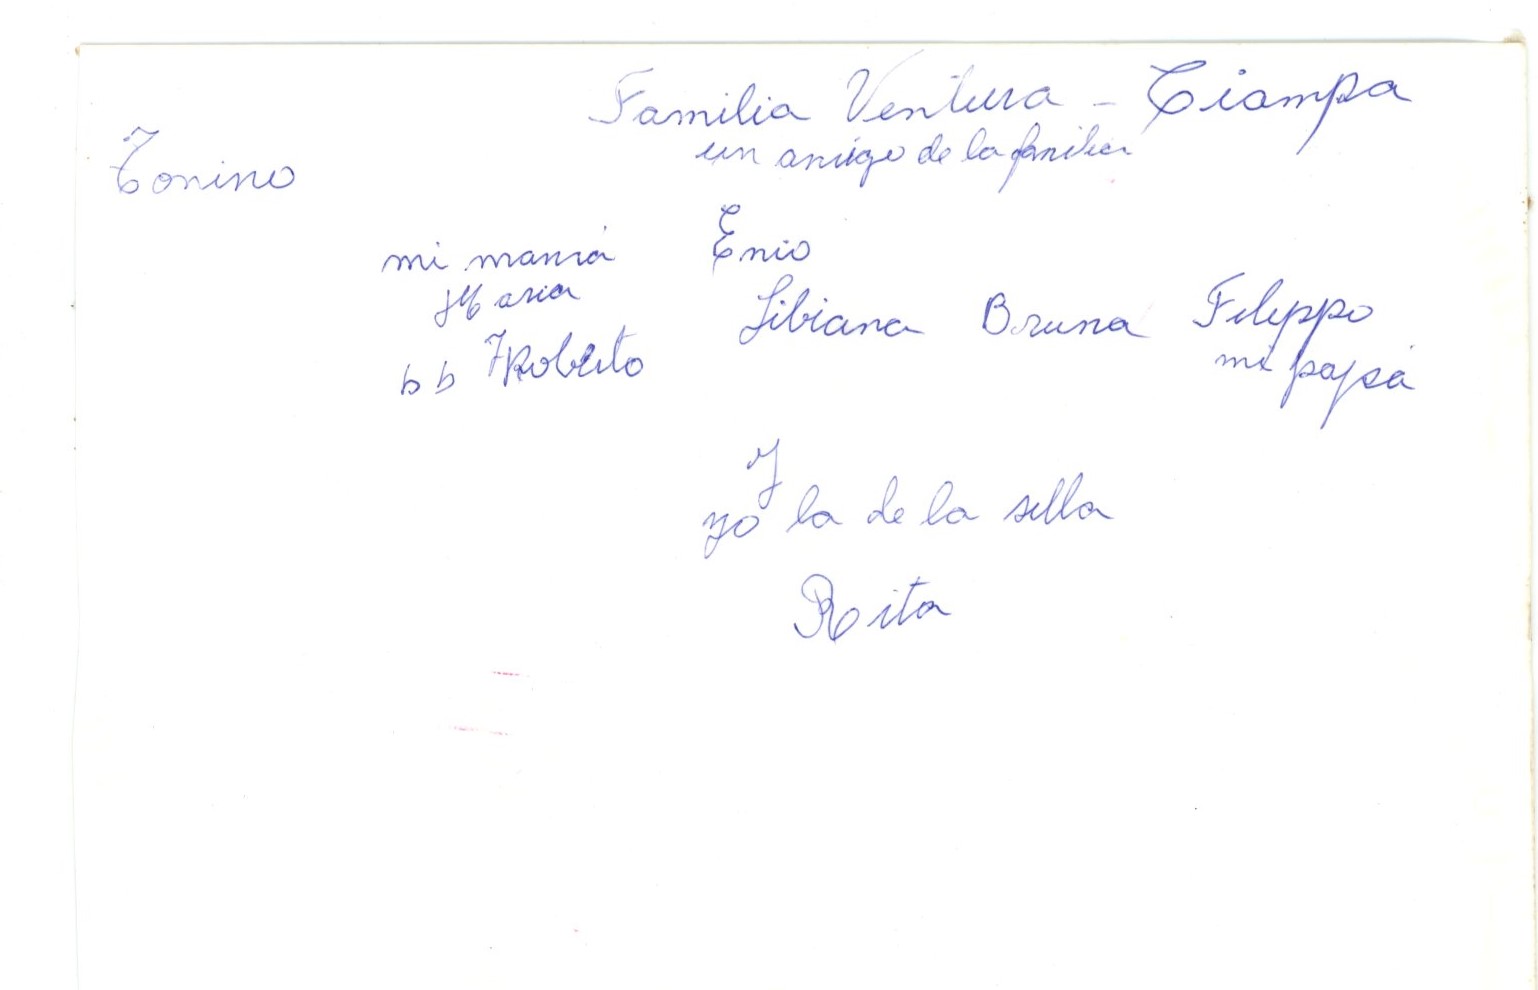 Familia Ventura - Ciampa
un amigo de la familia
Tonino
mi mamá Enio
Maria
Libiana Bruna Filippo
bb Roberto
mi papá
Y
yo la de la silla
Rita